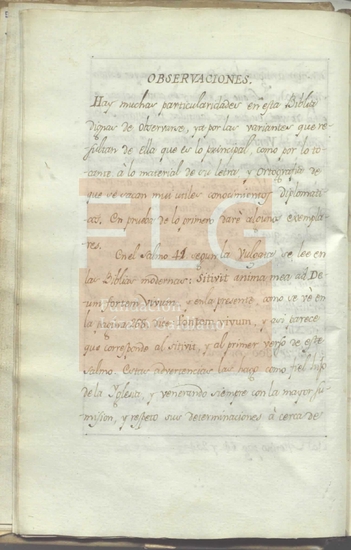 OBSERVACIONES.
Hay muchas particularidades en esta Biblia
dignas de observarse, ya por las variantes que re-
sultan de ella que es lo principal, como por lo to-
cante á lo material de su letra y Ortografia de
que se sacan mui utiles conocimientos diplomati-
cos. En prueba de lo primero daré algunos exempla-
res.
En el Salmo 41 segun la Vulgata se lee en
las Biblias modernas: Sitivit anima mea ad De-
um fortem vivum, y en la presente, como se vé en
la pagina 366. dice fontem vivum, y asi parece
que corresponde al sitivit, y al primer verso de este
Salmo. Estas advertencias las hago como fiel hijo
de la Yglesia, y venerando siempre con la mayor su-
mision, y respeto sus determinaciones á cerca de
FLG
Fundación